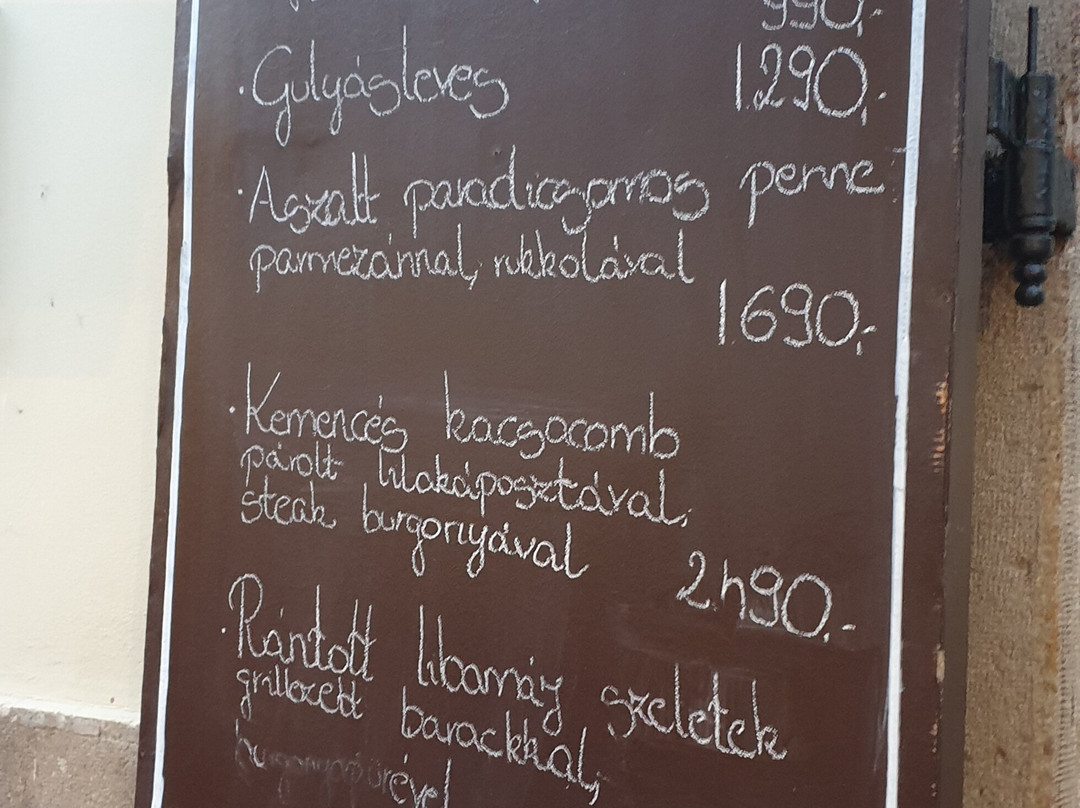 990,-
· Gulyásleves 1.290,-
· Aszalt paradicsomos penne
parmezánnal, rukkolával
1.690,-
· Kemencés kacsacomb
párolt lilakáposztával,
steak burgonyával
2.490,-
· Rántott libamáj szeletek
grillezett barackkal,
burgonyapürével